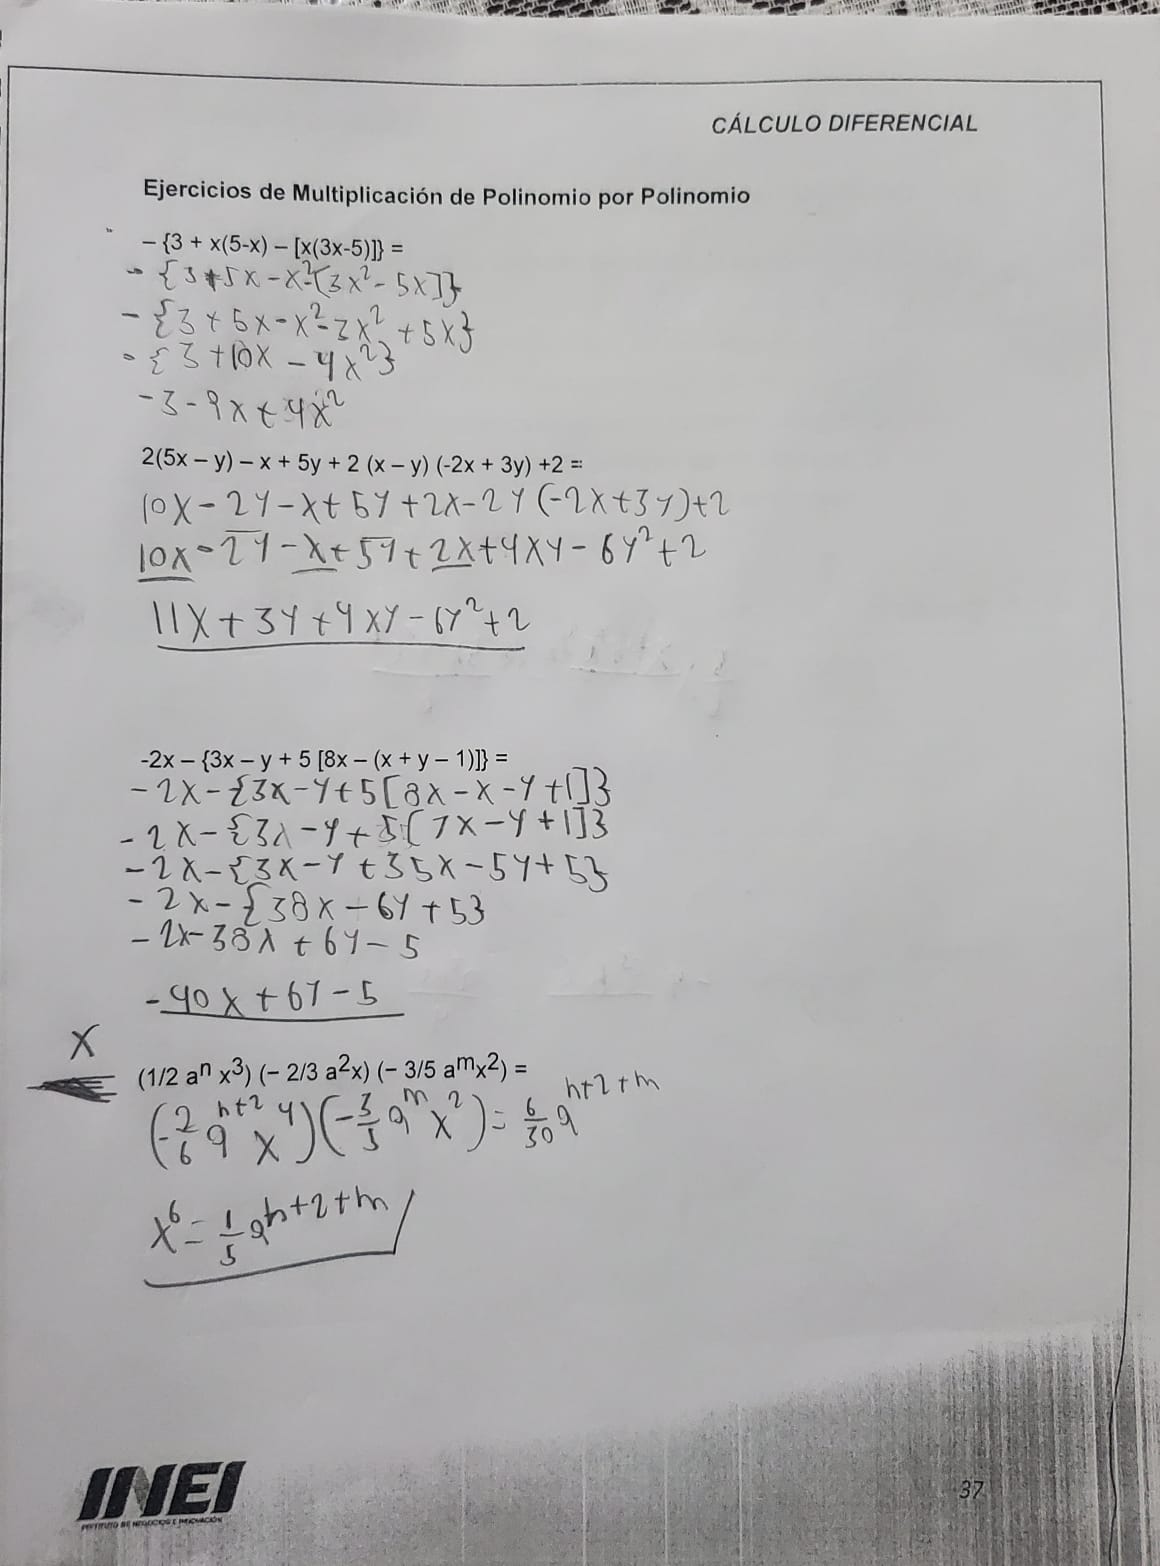 CÁLCULO DIFERENCIAL
Ejercicios de Multiplicación de Polinomio por Polinomio
– {3 + x(5-x) – [x(3x-5)]} =
- {3+5x-x²-[3x²-5x]}
- {3+5x-x²-3x²+5x}
- {3+10x-4x²}
-3-9x+4x²
2(5x – y) – x + 5y + 2 (x – y) (-2x + 3y) +2 =
10x-2y-x+5y+2x-2y(-2x+3y)+2
10x-2y-x+5y+2x+4xy-6y²+2
11x+3y+4xy-6y²+2
-2x – {3x – y + 5 [8x – (x + y – 1)]} =
-2x-{3x-y+5[8x-x-y+1]}
-2x-{3x-y+5[7x-y+1]}
-2x-{3x-y+35x-5y+5}
-2x-{38x-6y+5}
-2x-38x+6y-5
-40x+6y-5
X
(1/2 aⁿ x³) (– 2/3 a²x) (– 3/5 aᵐx²) =
(-2/6 aⁿ⁺² x⁴)(-3/5 aᵐ x²) = 6/30 aⁿ⁺²⁺ᵐ
x⁶ = 1/5 aⁿ⁺²⁺ᵐ
INEI
INSTITUTO DE NEGOCIOS E INNOVACIÓN
37